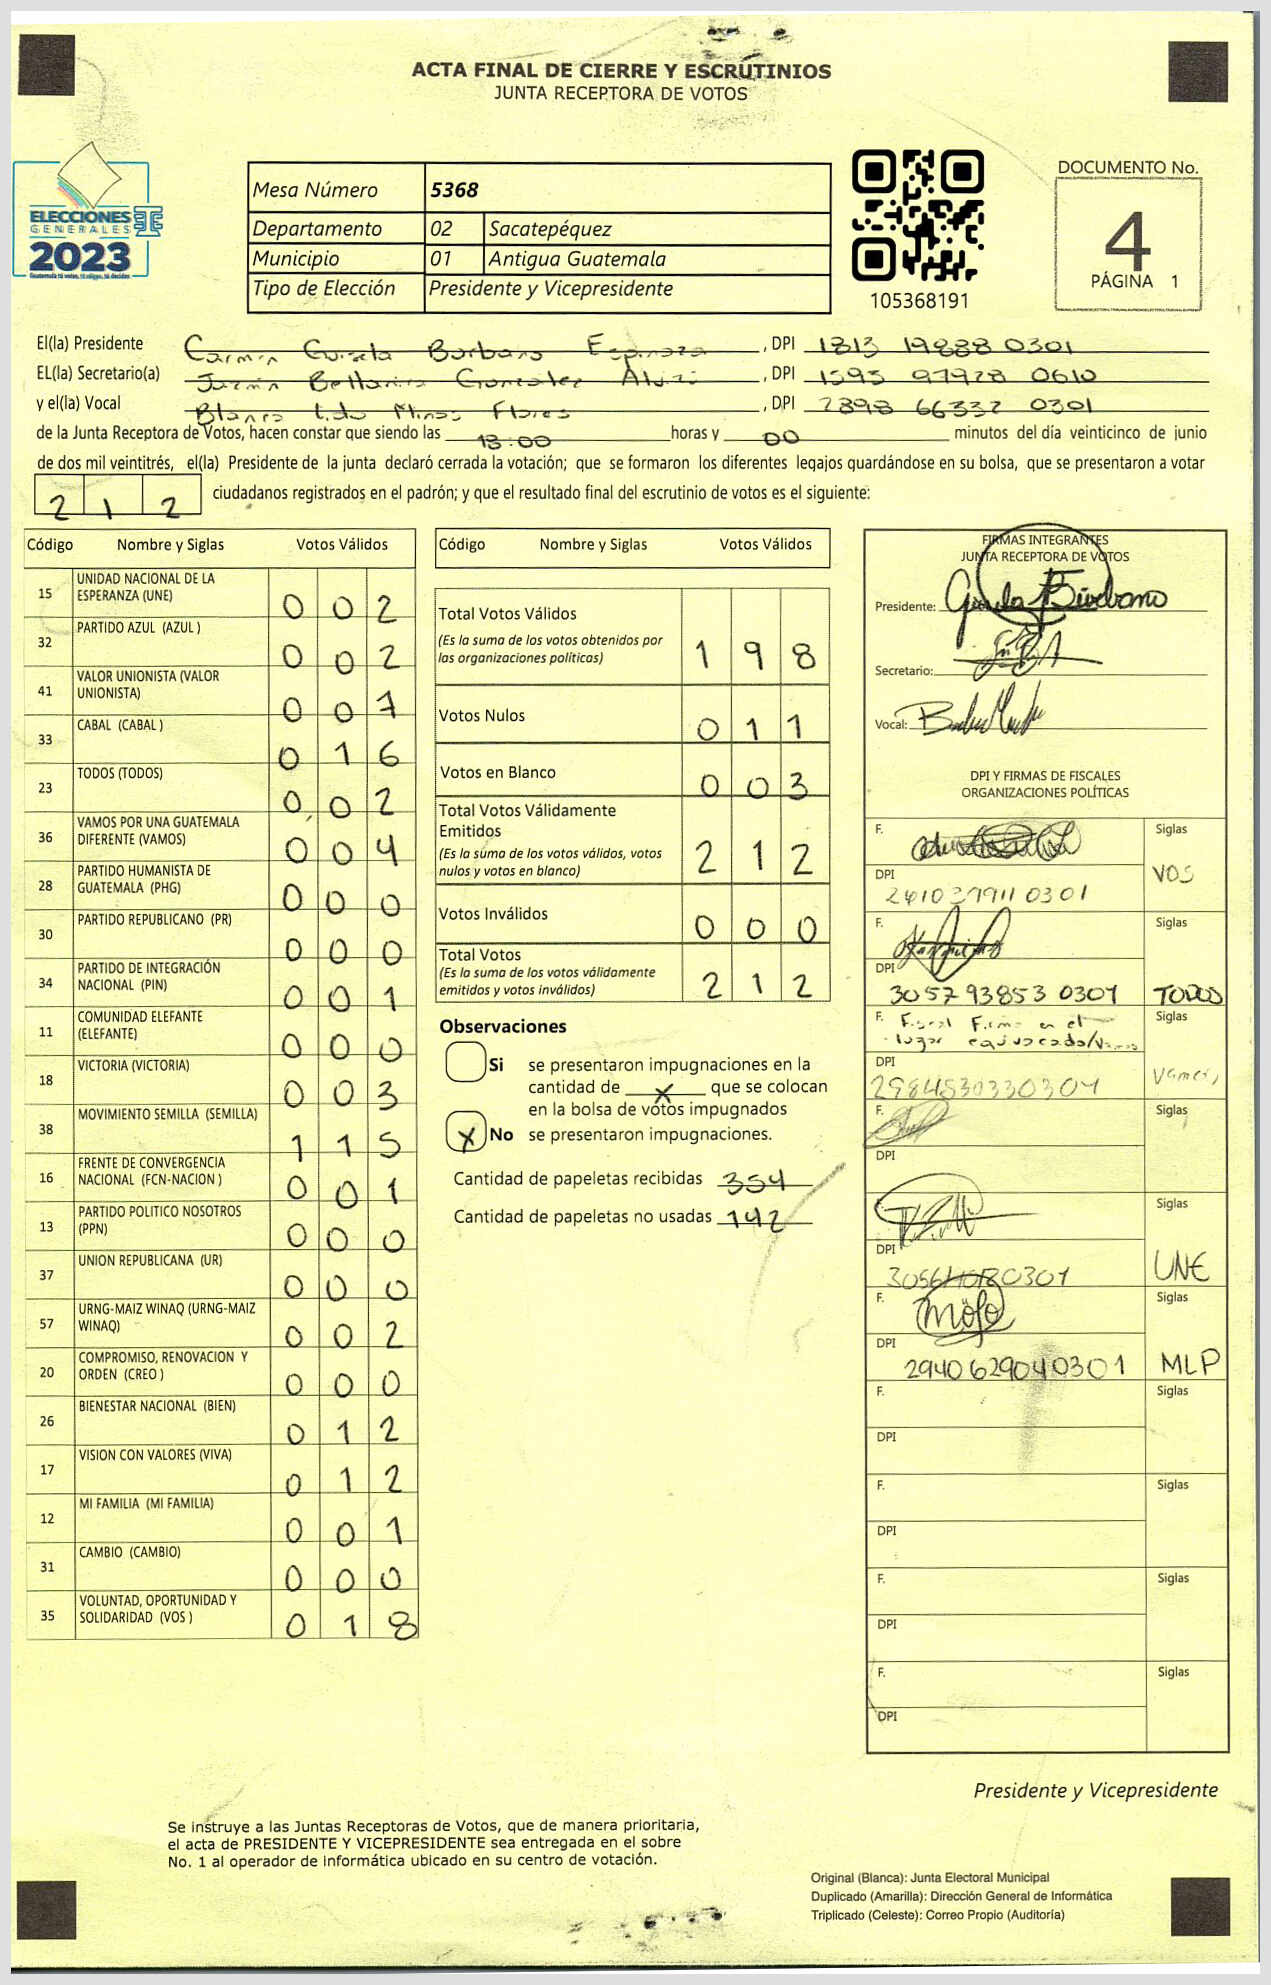 ACTA FINAL DE CIERRE Y ESCRUTINIOS
JUNTA RECEPTORA DE VOTOS
ELECCIONES
GENERALES
2023
Guatemala tú votas, tú eliges, tú decides
Mesa Número 5368
Departamento 02 Sacatepéquez
Municipio 01 Antigua Guatemala
Tipo de Elección Presidente y Vicepresidente
105368191
DOCUMENTO No.
4
PÁGINA 1
El(la) Presidente Carmen Guisela Borbano Espinoza, DPI 1813 19888 0301
EL(la) Secretario(a) Gonzalez, DPI 1593 97928 0610
y el(la) Vocal Blanca Lida Flores, DPI 2898 66332 0301
de la Junta Receptora de Votos, hacen constar que siendo las 18:00 horas y 00 minutos del día veinticinco de junio
de dos mil veintitrés, el(la) Presidente de la junta declaró cerrada la votación; que se formaron los diferentes legajos guardándose en su bolsa, que se presentaron a votar
212 ciudadanos registrados en el padrón; y que el resultado final del escrutinio de votos es el siguiente:
Código Nombre y Siglas Votos Válidos
15 UNIDAD NACIONAL DE LA ESPERANZA (UNE) 002
32 PARTIDO AZUL (AZUL ) 002
41 VALOR UNIONISTA (VALOR UNIONISTA) 007
33 CABAL (CABAL ) 016
23 TODOS (TODOS) 002
36 VAMOS POR UNA GUATEMALA DIFERENTE (VAMOS) 004
28 PARTIDO HUMANISTA DE GUATEMALA (PHG) 000
30 PARTIDO REPUBLICANO (PR) 000
34 PARTIDO DE INTEGRACIÓN NACIONAL (PIN) 001
11 COMUNIDAD ELEFANTE (ELEFANTE) 000
18 VICTORIA (VICTORIA) 003
38 MOVIMIENTO SEMILLA (SEMILLA) 115
16 FRENTE DE CONVERGENCIA NACIONAL (FCN-NACION ) 001
13 PARTIDO POLITICO NOSOTROS (PPN) 000
37 UNION REPUBLICANA (UR) 000
57 URNG-MAIZ WINAQ (URNG-MAIZ WINAQ) 002
20 COMPROMISO, RENOVACION Y ORDEN (CREO ) 000
26 BIENESTAR NACIONAL (BIEN) 012
17 VISION CON VALORES (VIVA) 012
12 MI FAMILIA (MI FAMILIA) 001
31 CAMBIO (CAMBIO) 000
35 VOLUNTAD, OPORTUNIDAD Y SOLIDARIDAD (VOS ) 018
Código Nombre y Siglas Votos Válidos
Total Votos Válidos 198
(Es la suma de los votos obtenidos por
las organizaciones políticas)
Votos Nulos 011
Votos en Blanco 003
Total Votos Válidamente
Emitidos 212
(Es la suma de los votos válidos, votos
nulos y votos en blanco)
Votos Inválidos 000
Total Votos 212
(Es la suma de los votos válidamente
emitidos y votos inválidos)
Observaciones
Si se presentaron impugnaciones en la
cantidad de X que se colocan
en la bolsa de votos impugnados
X No se presentaron impugnaciones.
Cantidad de papeletas recibidas 354
Cantidad de papeletas no usadas 142
FIRMAS INTEGRANTES
JUNTA RECEPTORA DE VOTOS
Presidente:
Secretario:
Vocal:
DPI Y FIRMAS DE FISCALES
ORGANIZACIONES POLÍTICAS
F. Siglas
DPI VOS
F. Siglas
DPI 3057 93853 0301 TODOS
F. Fiscal Firmo en el Siglas
lugar equivocado/Vamos
DPI 2984530330301 Vamos
F. Siglas
DPI
Siglas
DPI UNE
F. Siglas
DPI 2940629040301 MLP
F. Siglas
DPI
F. Siglas
DPI
F. Siglas
DPI
F. Siglas
DPI
Presidente y Vicepresidente
Se instruye a las Juntas Receptoras de Votos, que de manera prioritaria,
el acta de PRESIDENTE Y VICEPRESIDENTE sea entregada en el sobre
No. 1 al operador de informática ubicado en su centro de votación.
Original (Blanca): Junta Electoral Municipal
Duplicado (Amarilla): Dirección General de Informática
Triplicado (Celeste): Correo Propio (Auditoría)